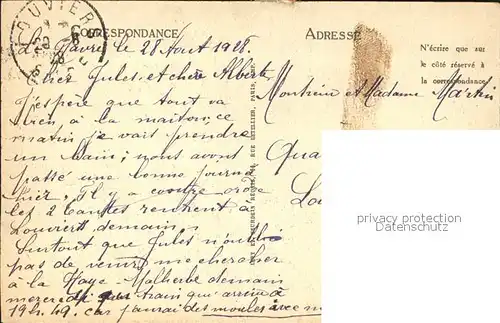 LOUVIERS
CORRESPONDANCE
ADRESSE
Le Havre le 28 Aout 1928.
N'écrire que sur
le côté réservé à
la correspondance
Cher Jules et chère Alberte
J'espère que tout va
bien à la maison, ce
matin je vais prendre
un bain; nous avons
passé une bonne journée
hier, Il y a contre ordre
les 2 tantes rentrent à
Louviers demain,
Surtout que Jules n'oublie
pas de venir me chercher
à la Haye-Malherbe demain
mercredi train qui arrive à
19h.49. car j'aurai des moules avec m
Monsieur et Madame Martin
Qua
Lou
privacy protection